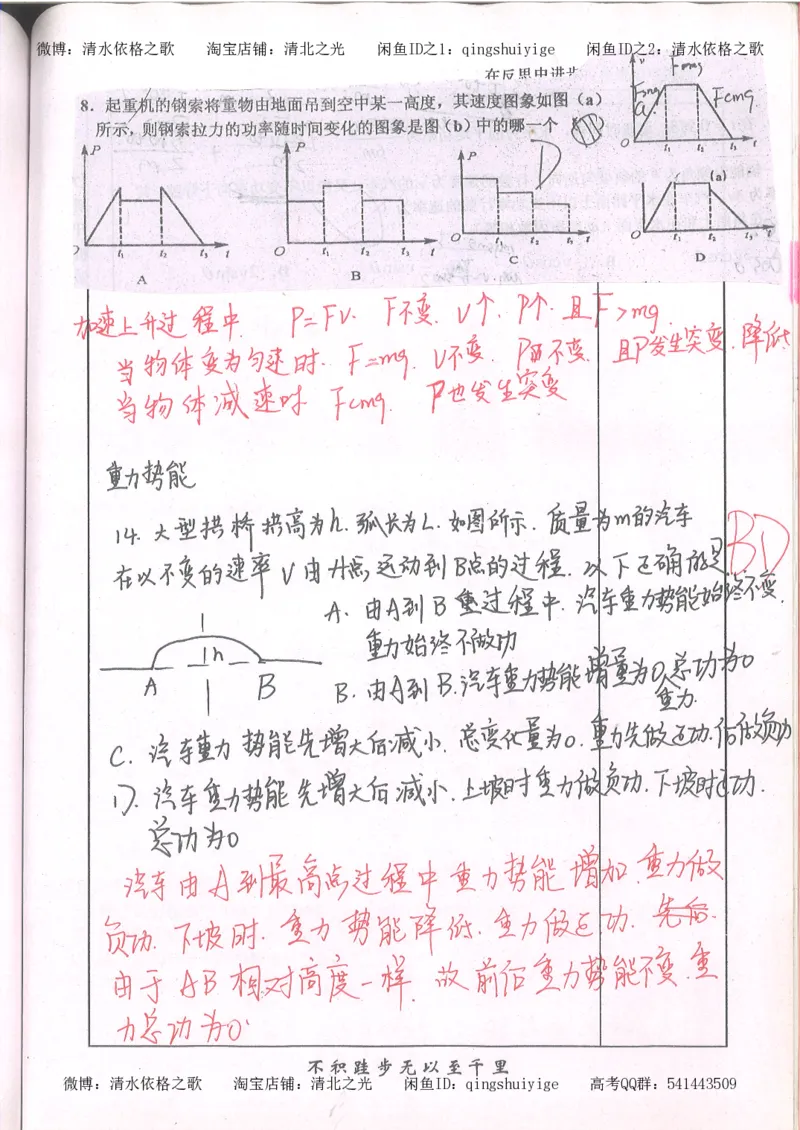 微博：清水依格之歌 淘宝店铺：清北之光 闲鱼ID之1：qingshuiyige 闲鱼ID之2：清水依格之歌
在反思中进步
8．起重机的钢索将重物由地面吊到空中某一高度，其速度图象如图（a）
所示，则钢索拉力的功率随时间变化的图象是图（b）中的哪一个
D
v
F=mg
F<mg
O t₁ t₂ t₃ t
(a)
P
t₁ t₂ t₃ t
A
P
O t₁ t₂ t₃ t
B
P
O t₁ t₂ t₃ t
C
O t₁ t₂ t₃ t
D
加速上升过程中. P=Fv. F不变. v↑. P↑. 且F>mg.
当物体变为匀速时. F=mg. v不变. P不变. 且P发生突变. 降低
当物体减速时 F<mg. P也发生突变
重力势能
14. 大型拱桥拱高为h. 弧长为L. 如图所示. 质量为m的汽车
在以不变的速率v由A点运动到B点的过程. 以下正确的是
BD
A. 由A到B 重过程中. 汽车重力势能始终不变.
重力始终不做功
h
A B
B. 由A到B. 汽车重力势能增量为0, 总功为0
重力.
C. 汽车重力势能先增大后减小. 总变化量为0. 重力先做正功. 后做负功
D. 汽车重力势能先增大后减小. 上坡时重力做负功. 下坡时正功.
总功为0
汽车由A到最高点过程中重力势能增加. 重力做
负功. 下坡时. 重力势能降低. 重力做正功. 先后.
由于AB相对高度一样. 故前后重力势能不变. 重
力总功为0.
不积跬步无以至千里
微博：清水依格之歌 淘宝店铺：清北之光 闲鱼ID：qingshuiyige 高考QQ群：541443509